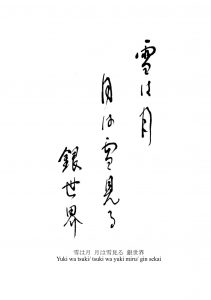 雪は月
月は雪見る
銀世界
雪は月 月は雪見る 銀世界
Yuki wa tsuki/ tsuki wa yuki miru/ gin sekai